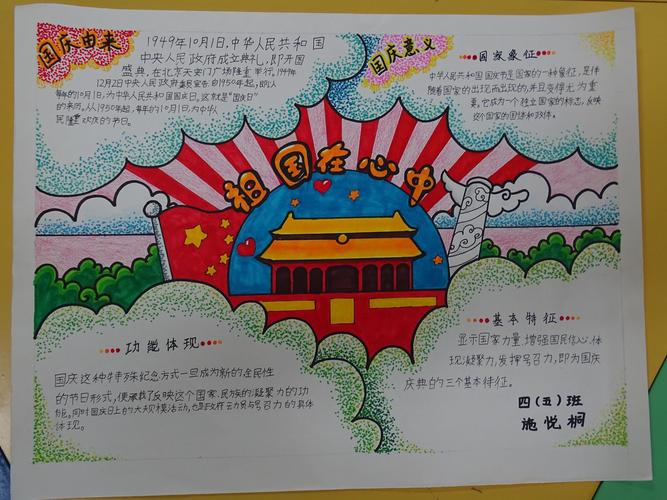 国庆由来
1949年10月1日,中华人民共和国
中央人民政府成立典礼,即开国
盛典,在北京天安门广场隆重举行。1949年
12月2日中央人民政府
告自1950年起,即以
每年的10月1日,为中华人民共和国国庆日。这就是"国庆日"
的来历。从1950年起,每年的10月1日,为中华人
民隆重欢庆的节日。
国庆意义
国家象征
中华人民共和国国庆节是国家的一种象征,是伴
随着国家的出现而出现的,并且变得尤为重
要。它成为一个独立国家的标志,反映
这个国家的国体和政体。
祖国在心中
功能体现
国庆这种特殊纪念方式一旦成为新的全民性
的节日形式,便承载了反映这个国家、民族的凝聚力的功
能。同时国庆日上的大规模活动,也是政府动员与号召力的具体
体现。
基本特征
显示国家力量,增强国民信心,体
现凝聚力,发挥号召力,即为国庆
庆典的三个基本特征。
四(五)班
施悦桐